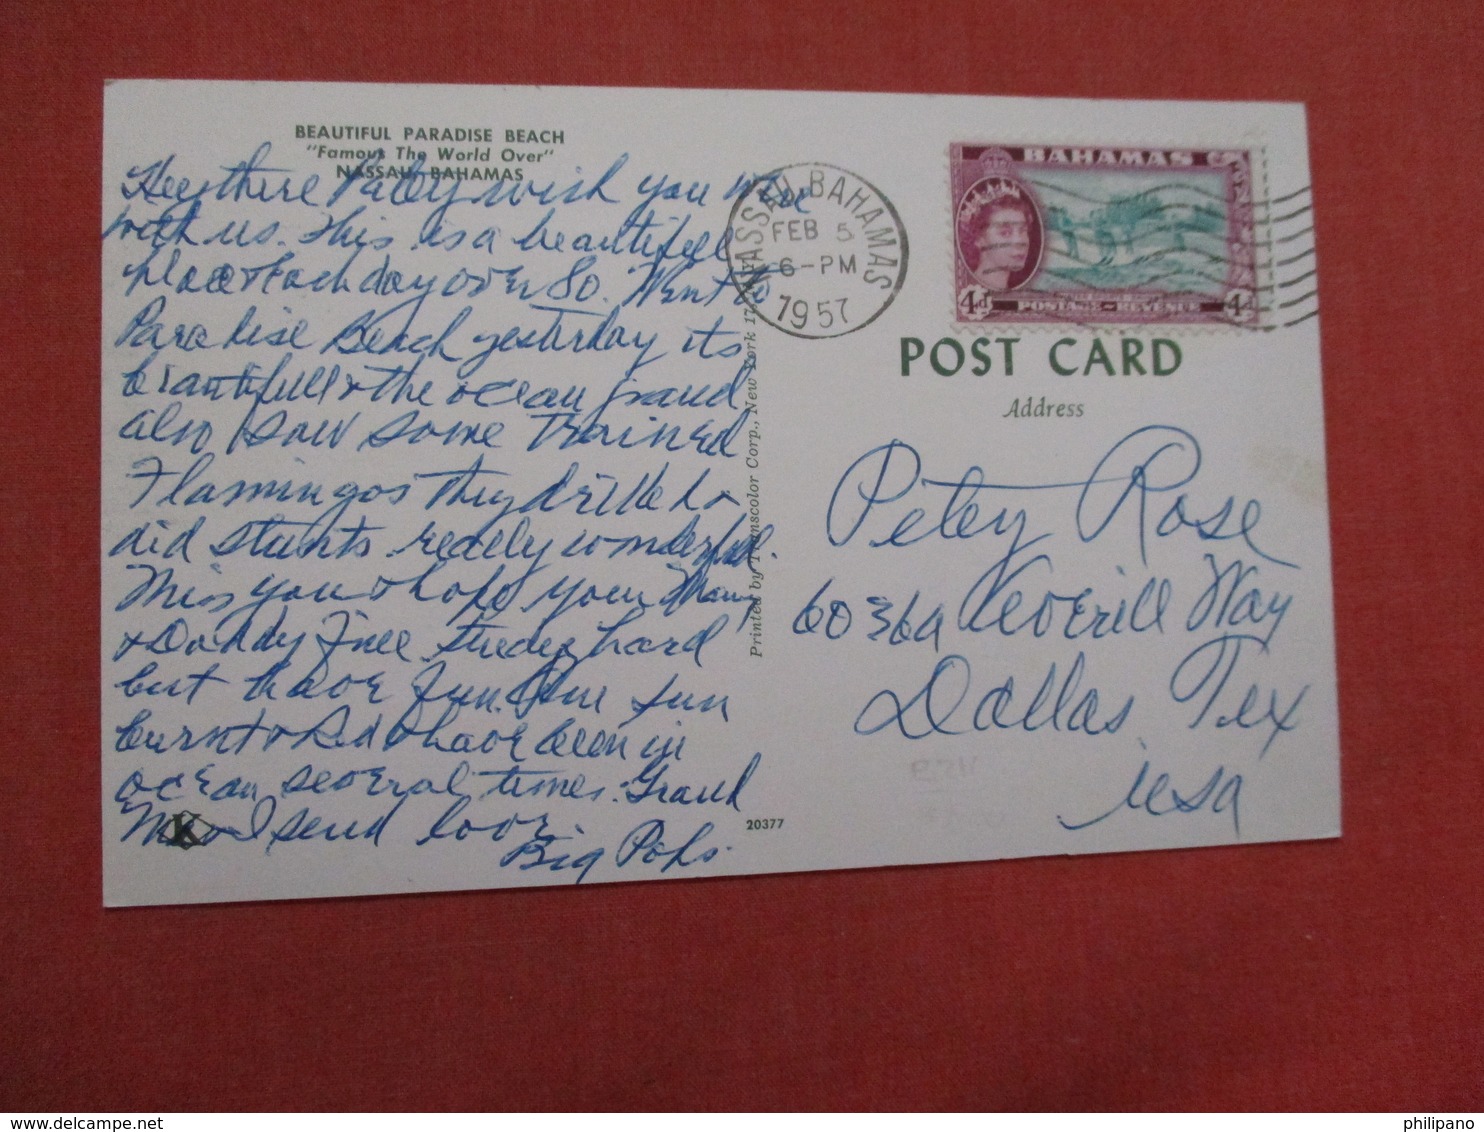 BEAUTIFUL PARADISE BEACH
"Famous The World Over"
NASSAU, BAHAMAS
Hey there Petey wish you were
with us. This is a beautiful
place & Each day over 80. Went to
Paradise Beach yesterday its
beautifull & the ocean grand
also I saw some Trained
Flamingos they drilled &
did stunts really wonderful.
Miss you & hope your Mamy
& Daddy fine study hard
but have fun. I'm sun
burnt & Red & have been in
ocean several times. Grand
Ma & I send love
Big Pops.
K
20377
Printed by Transcolor Corp., New York 17, N.Y.
NASSAU BAHAMAS
FEB 5
6-PM
1957
BAHAMAS
4d POSTAGE - REVENUE 4d
POST CARD
Address
Petey Rose
6036a Averill Way
Dallas, Tex
usa
philipano